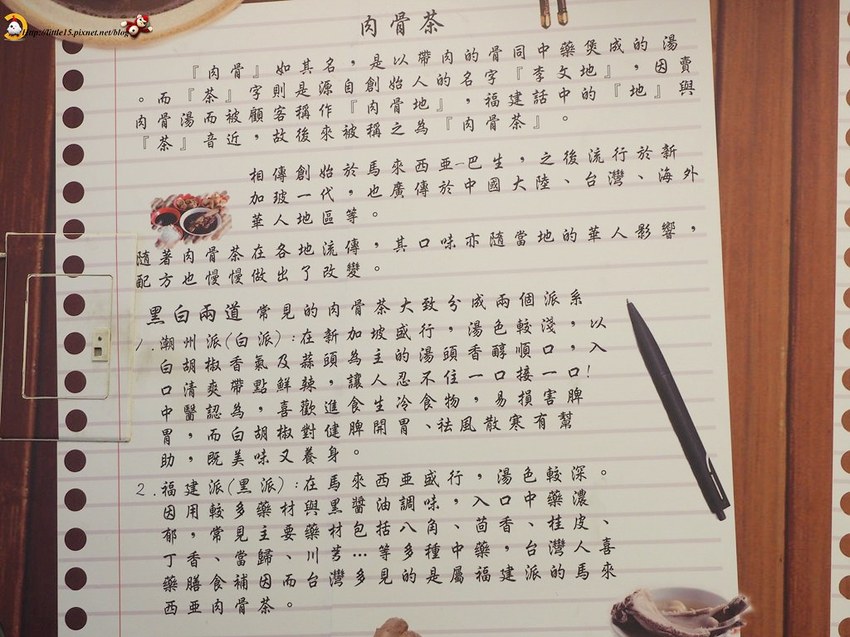 http://little15.pixnet.net/blog
肉骨茶
『肉骨』如其名,是以帶肉的骨同中藥煲成的湯
。而『茶』字則是源自創始人的名字『李文地』,因賣
肉骨湯而被顧客稱作『肉骨地』,福建話中的『地』與
『茶』音近,故後來被稱之為『肉骨茶』。
相傳創始於馬來西亞-巴生,之後流行於新
加玻一代,也廣傳於中國大陸、台灣、海外
華人地區等。
隨著肉骨茶在各地流傳,其口味亦隨當地的華人影響,
配方也慢慢做出了改變。
黑白兩道 常見的肉骨茶大致分成兩個派系
1.潮州派(白派):在新加坡盛行,湯色較淺,以
白胡椒香氣及蒜頭為主的湯頭香醇順口,入
口清爽帶點鮮辣,讓人忍不住一口接一口!
中醫認為,喜歡進食生冷食物,易損害脾
胃,而白胡椒對健脾開胃、袪風散寒有幫
助,既美味又養身。
2.福建派(黑派):在馬來西亞盛行,湯色較深。
因用較多藥材與黑醬油調味,入口中藥濃
郁,常見主要藥材包括八角、茴香、桂皮、
丁香、當歸、川芎…等多種中藥,台灣人喜
藥膳食補因而台灣多見的是屬福建派的馬來
西亞肉骨茶。